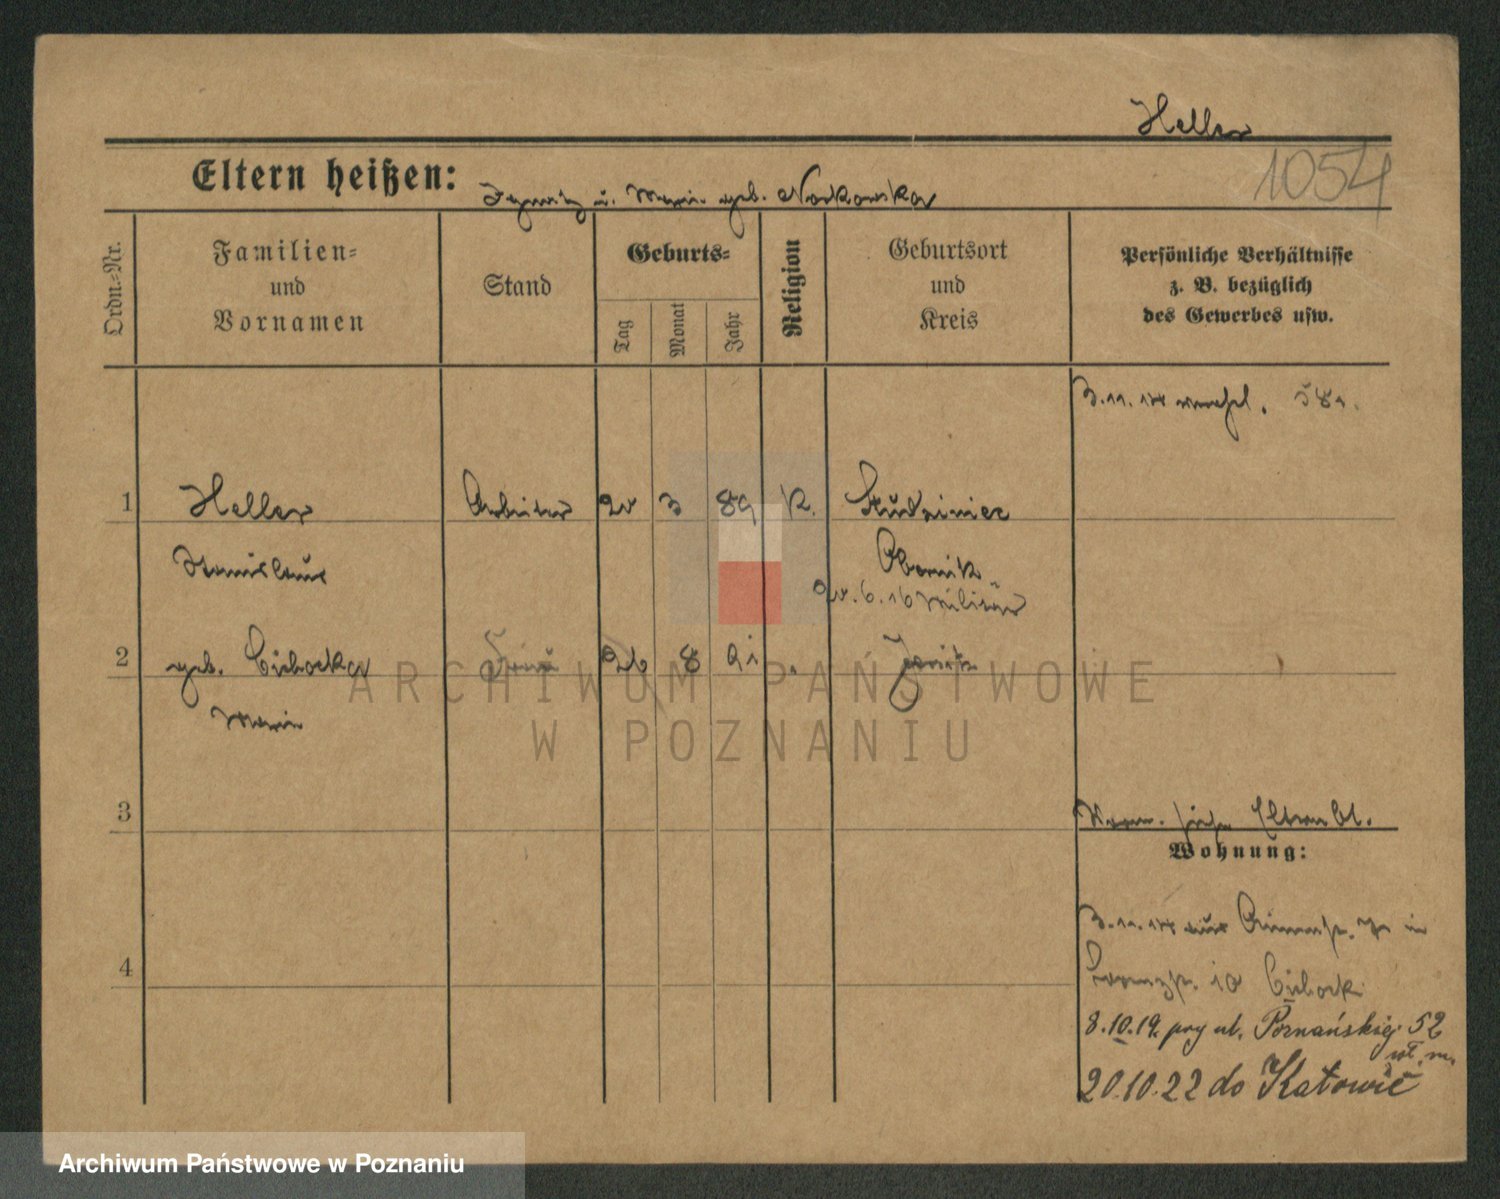 Heller
1054
Eltern heißen: u. Maria geb. Norkowska
Ordn.-Nr.
Familien-
und
Vornamen
Stand
Geburts-
Tag
Monat
Jahr
Religion
Geburtsort
und
Kreis
Persönliche Verhältnisse
z. B. bezüglich
des Gewerbes usw.
3.11.14
1 Heller Arbeiter 3 89 K. Studziniec
Stanislaus Obornik
6.16 Militär
2 geb. Cichocka Frau 26 8 91
Maria
3
Elternbl.
Wohnung:
3.11.14 aus in
10 Cichocki
4
8.10.19. przy ul. Poznańskiej 52
wł. m.
20.10.22 do Katowic
ARCHIWUM PAŃSTWOWE
W POZNANIU
Archiwum Państwowe w Poznaniu